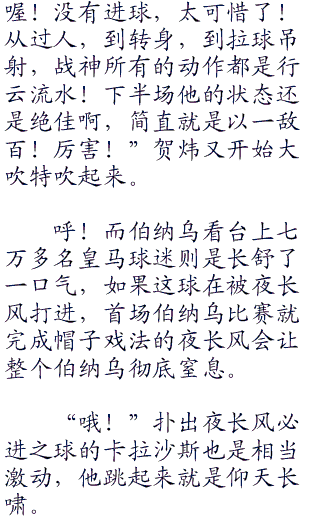 喔！没有进球，太可惜了！
从过人，到转身，到拉球吊
射，战神所有的动作都是行
云流水！下半场他的状态还
是绝佳啊，简直就是以一敌
百！厉害！”贺炜又开始大
吹特吹起来。
呼！而伯纳乌看台上七
万多名皇马球迷则是长舒了
一口气，如果这球在被夜长
风打进，首场伯纳乌比赛就
完成帽子戏法的夜长风会让
整个伯纳乌彻底窒息。
“哦！”扑出夜长风必
进之球的卡拉沙斯也是相当
激动，他跳起来就是仰天长
啸。